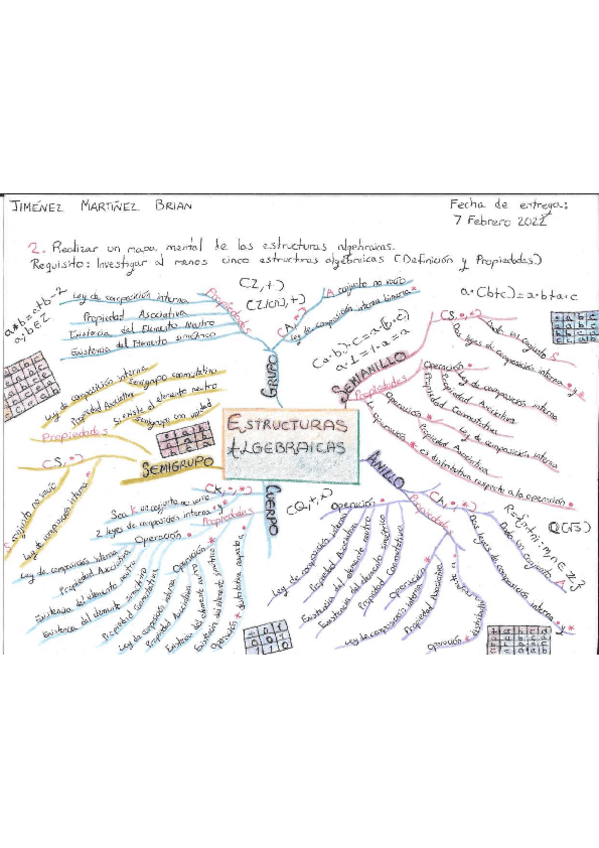 JIMÉNEZ MARTÍNEZ BRIAN
Fecha de entrega:
7 Febrero 2022
2. Realizar un mapa mental de las estructuras algebraicas.
Requisito: Investigar al menos cinco estructuras algebraicas (Definición y Propiedades)
ESTRUCTURAS
ALGEBRAICAS
GRUPO
(Z,+)
(A,*)
A conjunto no vacío
Ley de composición interna binaria*
Propiedades
Ley de composición interna
Propiedad Asociativa
Existencia del Elemento Neutro
Existencia del Elemento simétrico
a*b=a+b-2
a,b∈Z
SEMIANILLO
a·(b+c)=a·b+a·c
(a·b)·c=a·(b·c)
a·1=1·a=a
(S,+,*)
Dado un conjunto S
Dos leyes de composición interna
Propiedades
Operación
Ley de composición interna
Propiedad Asociativa
Propiedad Conmutativa
Operación
Ley de composición interna
Propiedad Asociativa
La operación * es distributiva respecto a la operación
ANILLO
Q(√3)
Dado un conjunto A
Dos leyes de composición interna
Propiedades
Operación
Ley de composición interna
Propiedad Asociativa
Existencia del elemento neutro
Existencia del elemento simétrico
Propiedad Conmutativa
Operación
Ley de composición interna
Propiedad Asociativa
Operación
CUERPO
(Q,+,x)
(K,+,*)
Sea K un conjunto no vacío
2 leyes de composición interna
Propiedades
Operación
Ley de composición interna
Propiedad Asociativa
Existencia del elemento neutro
Existencia del elemento simétrico
Propiedad Conmutativa
Operación
Ley de composición interna
Propiedad Asociativa
Existencia del elemento neutro
Existencia del elemento simétrico
Operación * distributiva respecto a
SEMIGRUPO
(S,*)
S conjunto no vacío
Ley * composición interna
Propiedades
Ley de composición interna
Propiedad Asociativa
Semigrupo conmutativo
Si existe el elemento neutro
Semigrupo con unidad